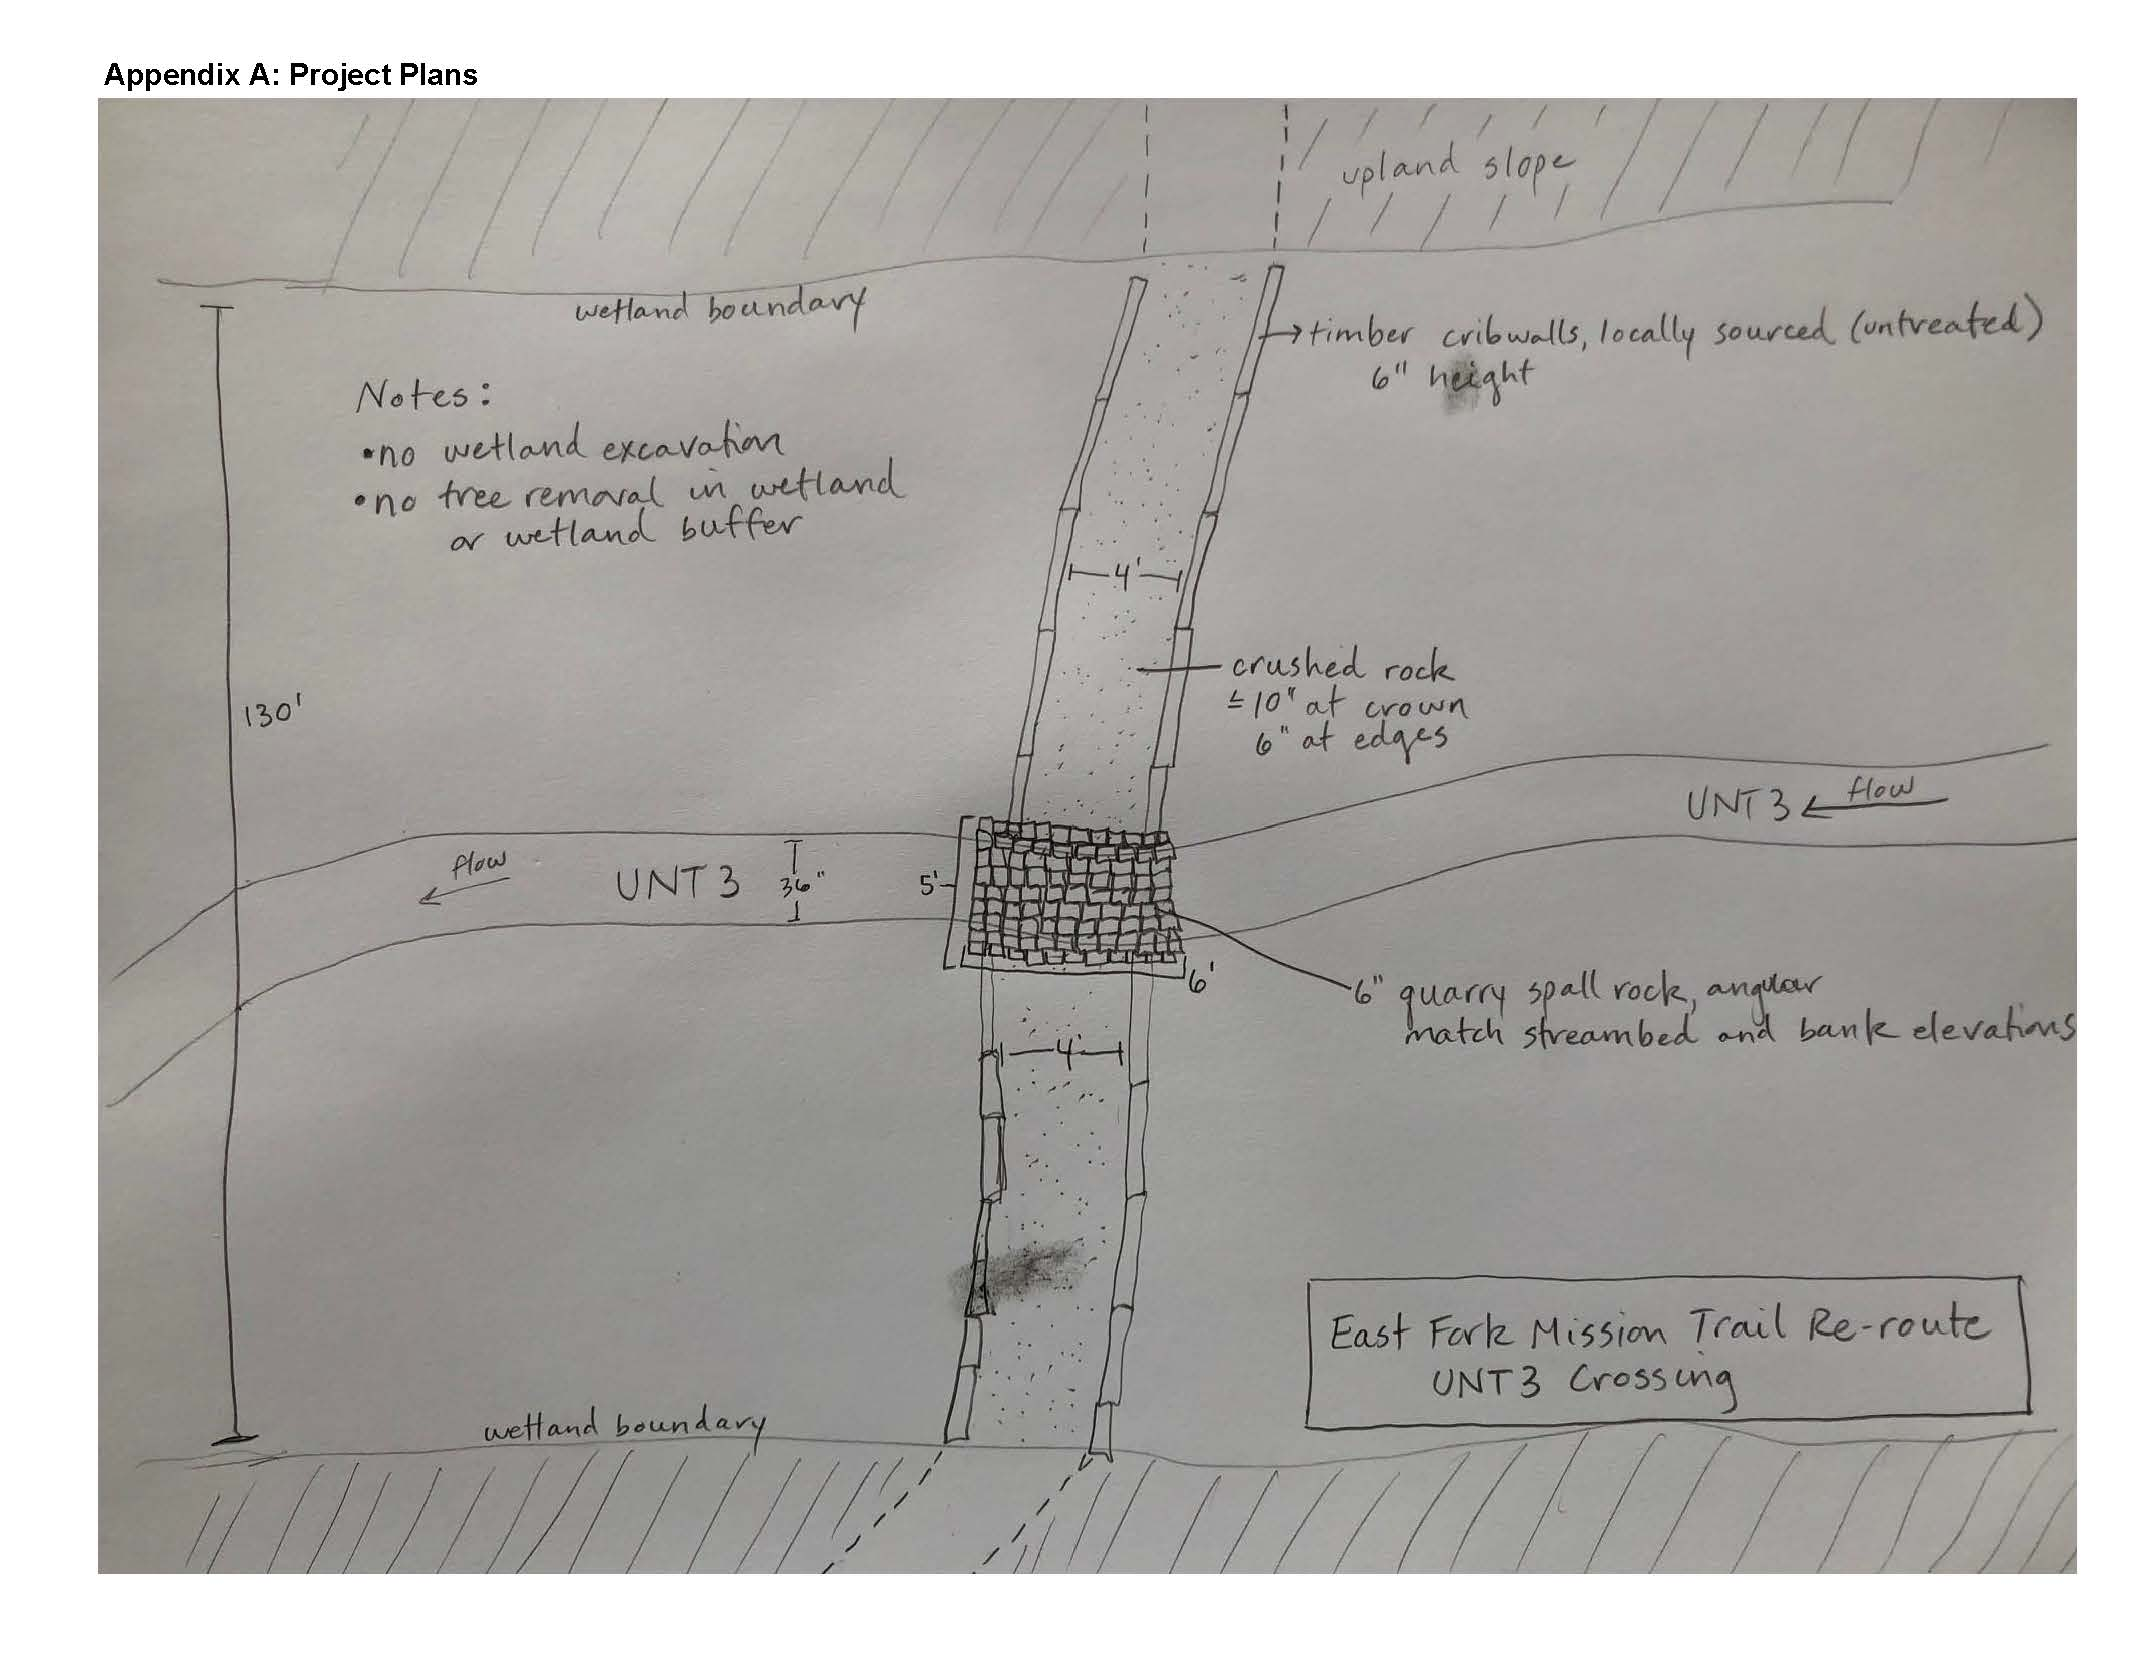 Appendix A: Project Plans
upland slope
wetland boundary
timber cribwalls, locally sourced (untreated)
6" height
Notes:
•no wetland excavation
•no tree removal in wetland
or wetland buffer
4'
crushed rock
≤10" at crown
6" at edges
130'
UNT3
flow
flow
UNT3
36"
5'
6'
6" quarry spall rock, angular
match streambed and bank elevations
4'
East Fork Mission Trail Re-route
UNT3 Crossing
wetland boundary